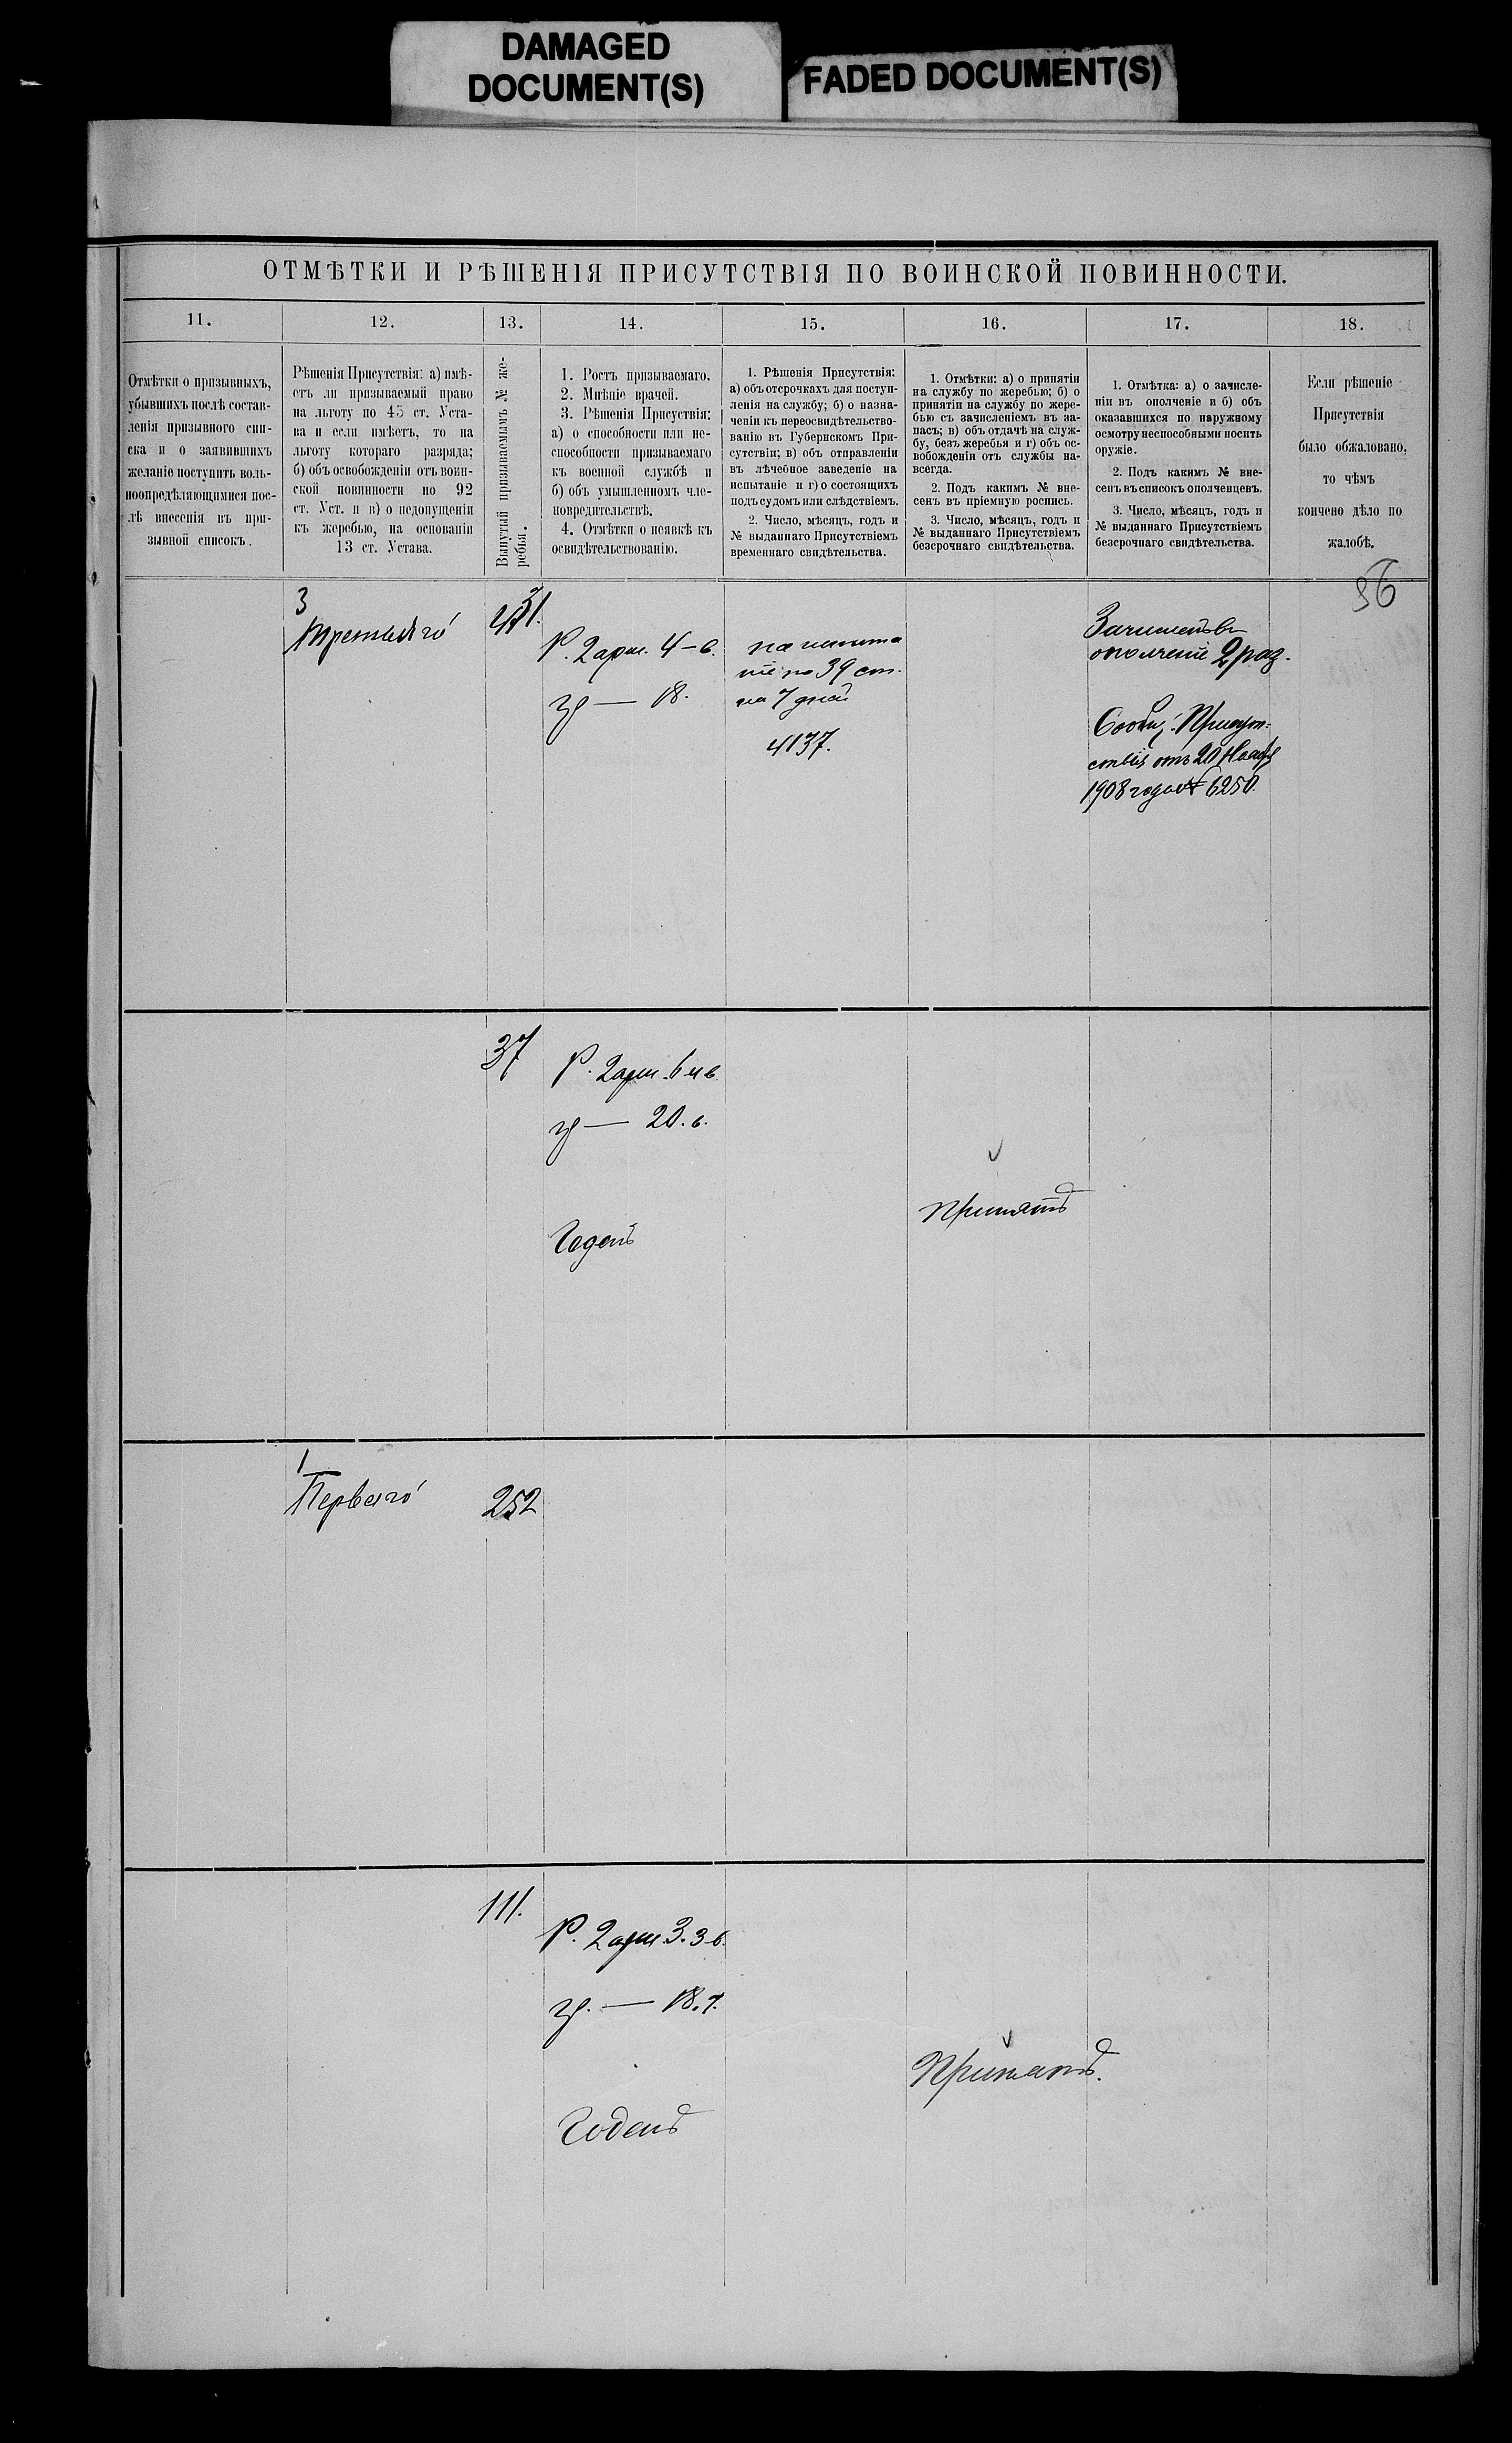 DAMAGED
DOCUMENT(S)
FADED DOCUMENT(S)
ОТМѢТКИ И РѢШЕНІЯ ПРИСУТСТВІЯ ПО ВОИНСКОЙ ПОВИННОСТИ.
11.
12.
13.
14.
15.
16.
17.
18.
Отмѣтки о призывныхъ,
убывшихъ послѣ состав-
ленія призывного спи-
ска и о заявившихъ
желаніе поступить воль-
ноопредѣляющимися пос-
лѣ внесенія въ при-
зывной списокъ.
Рѣшенія Присутствія: а) имѣ-
етъ ли призываемый право
на льготу по 45 ст. Уста-
ва и если имѣетъ, то на
льготу котораго разряда;
б) объ освобожденіи отъ воин-
ской повинности по 92
ст. Уст. и в) о недопущеніи
къ жеребью, на основаніи
13 ст. Устава.
Вынутый призываемымъ № же-
ребья.
1. Ростъ призываемаго.
2. Мнѣніе врачей.
3. Рѣшенія Присуствія:
а) о способности или не-
способности призываемаго
къ военной службѣ и
б) объ умышленномъ чле-
новредительствѣ.
4. Отмѣтки о неявкѣ къ
освидѣтельствованію.
1. Рѣшенія Присутствія:
а) объ отсрочкахъ для поступ-
ленія на службу; б) о назна-
ченіи къ переосвидѣтельство-
ванію въ Губернскомъ При-
сутствіи; в) объ отправленіи
въ лѣчебное заведеніе на
испытаніе и г) о состоящихъ
подъ судомъ или слѣдствіемъ.
2. Число, мѣсяцъ, годъ и
№ выданнаго Присутствіемъ
временнаго свидѣтельства.
1. Отмѣтки: а) о принятіи
на службу по жеребью; б) о
принятіи на службу по жере-
бью съ зачисленіемъ въ за-
пасъ; в) объ отдачѣ на служ-
бу, безъ жеребья и г) объ ос-
вобожденіи отъ службы на-
всегда.
2. Подъ какимъ № вне-
сенъ въ пріемную роспись.
3. Число, мѣсяцъ, годъ и
№ выданнаго Присутствіемъ
безсрочнаго свидѣтельства.
1. Отмѣтка: а) о зачисле-
ніи въ ополченіе и б) объ
оказавшихся по наружному
осмотру неспособными носить
оружіе.
2. Подъ какимъ № вне-
сенъ въ списокъ ополченцевъ.
3. Число, мѣсяцъ, годъ и
№ выданнаго Присутствіемъ
безсрочнаго свидѣтельства.
Если рѣшеніе
Присутствія
было обжаловано,
то чѣмъ
кончено дѣло по
жалобѣ.
3
Третьяго
Р. 2 арш. 4 - в.
гр — 18.
на испыта
ніе по 39 ст.
на 7 дней
4137.
Зачисленъ въ
ополченіе 2 раз.
Сообщ. Присут-
ствія отъ 20 Ноября
1908 года № 6250.
37
Р. 2 арш. 6 4 в.
гр — 20. в.
Годенъ
Принятъ
1
Перваго
252
111.
Р. 2 арш 3. 3 в.
гр. — 18. 7.
Годенъ
Принятъ.